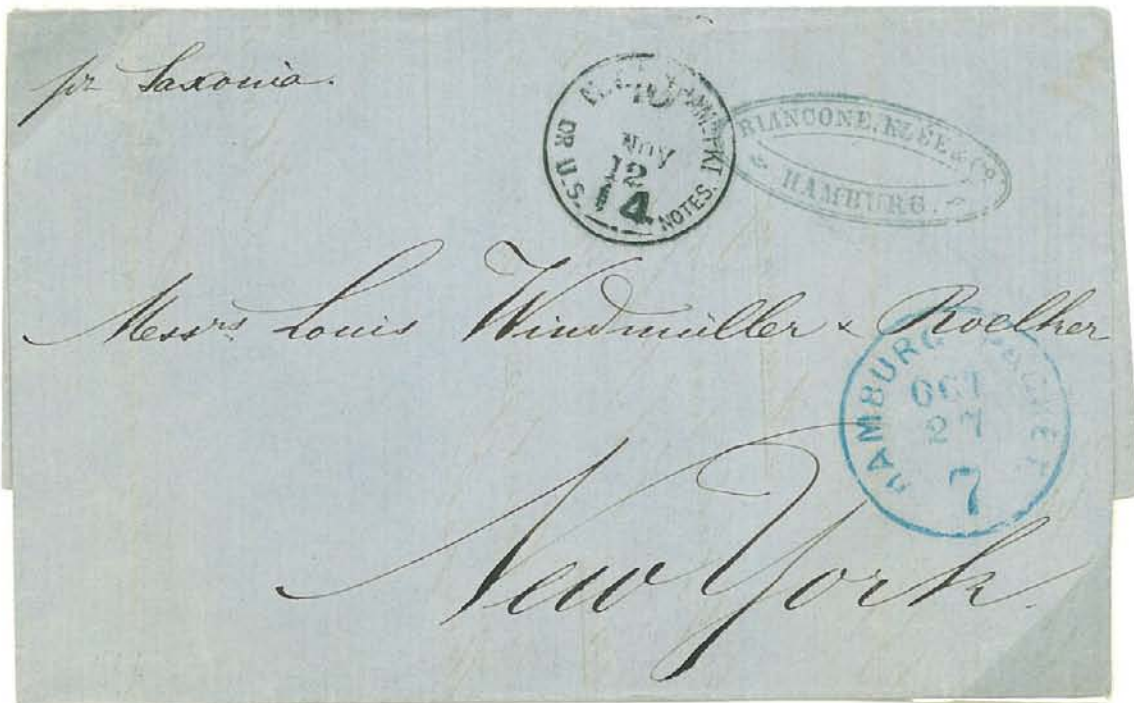 pr Saxonia.
10
Nov
12
14
OR U.S. NOTES.
BIANCONE, KLÉE & Co.
HAMBURG.
Messrs Louis Windmüller & Roelker
HAMBURG PACKET
OCT
27
7
New York.